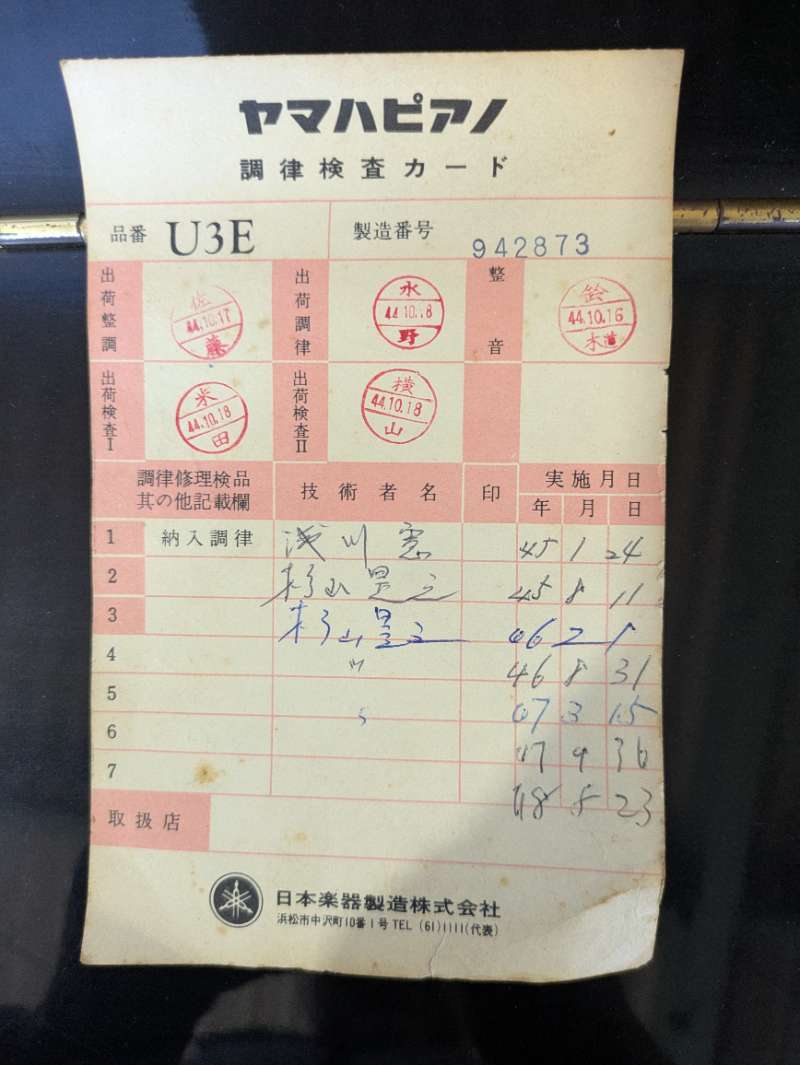 ヤマハピアノ
調律検査カード
品番 U3E 製造番号 942873
出荷整調 佐藤 44.10.17 出荷調律 水野 44.10.18 整音 鈴木 44.10.16
出荷検査I 米田 44.10.18 出荷検査II 横山 44.10.18
調律修理検品 技術者名 印 実施月日
其の他記載欄 年 月 日
1 納入調律 浅川 45 1 24
2 杉山 45 8 11
3 杉山 46 2 1
4 〃 46 8 31
5 47 3 15
6 47 9 30
7 48 8 23
取扱店
日本楽器製造株式会社
浜松市中沢町10番1号 TEL (61)1111(代表)